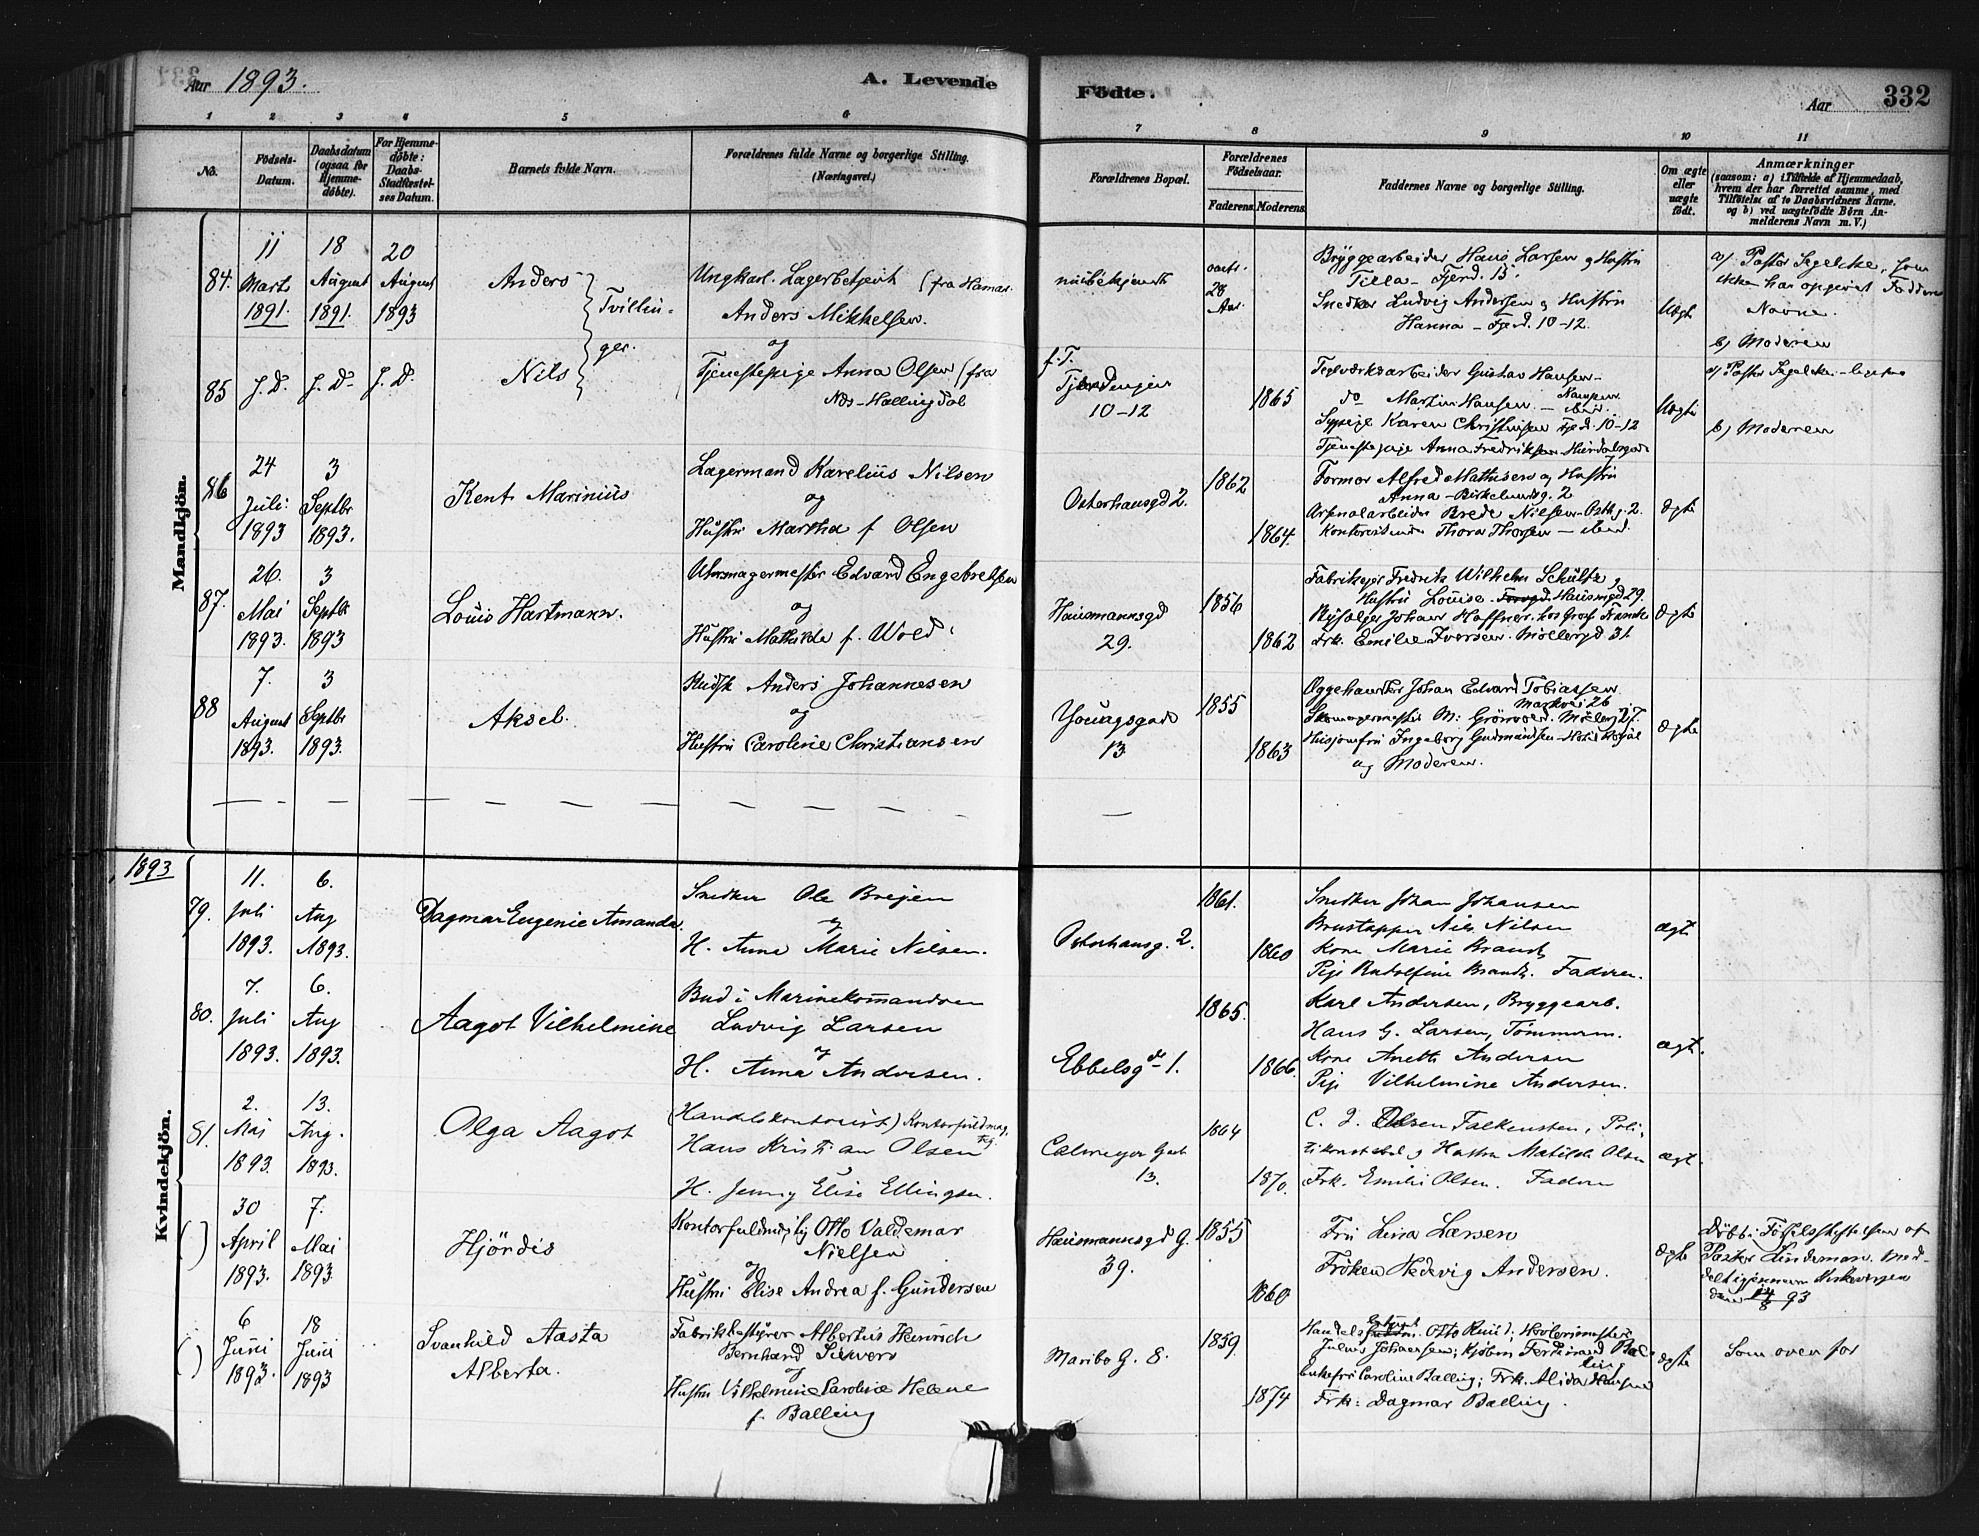 Aar 1893.
A. Levende
Födte.
Aar
332
1 2 3 4 5 6
7 8 9 10 11
No.
Födsels-
Datum.
Daabsdatum
(ogsaa for
Hjemme-
döbte).
For Hjemme-
döbte:
Daabs-
Stadfæstel-
ses Datum.
Barnets fulde Navn.
Forældrenes fulde Navne og borgerlige Stilling.
(Næringsvei.)
Forældrenes Bopæl.
Forældrenes
Födselsaar.
Faderens. Moderens.
Faddernes Navne og borgerlige Stilling.
Om ægte
eller
uægte
födt.
Anmærkninger
(saasom: a) i Tilfælde af Hjemmedaab,
hvem der har forrettet samme, med
Tilföielse af to Daabsvidners Navne.
og b) ved uægtefödte Börn An-
melderens Navn m. V.)
Mandkjön.
84.
11
Marts
1891.
18
August
1891.
20
August
1893
Anders
Tvillin-
ger.
Ungkarl. Lagerbetjent (fra Hamar.
Anders Mikkelsen.
og
ubekjendt
28
Aar
Bryggearbeider Hans Larsen og Hustru
Tilla - Fjerd. 15.
Snedker Ludvig Andersen og Hustru
Hanna - Fjerd. 10-12.
Uægte
a) Pastor Segelcke, som
ikke har opgivet Faddere
Navne.
b) Moderen
85
J. D. J. D. J. D.
Nils
Tjenestepige Anna Olsen (fra
Næs-Hallingdal
f. T.
10-12
1865
Teglværksarbeider Gustav Hansen-
do Martin Hansen
Sypige Karen Christensen Fjerd. 10-12
Tjenestepige Anna Fredriksen
Uægte
a) Pastor Segelcke-
b) Moderen
86
24
Juli
1893
3
Septbr
1893.
Kent Marinius
Lagermand Karelius Nilsen
og
Hustru Martha f. Olsen
Osterhausgd 2.
1862
1864.
Former Alfred Mathisen og Hustru
Anna - Birkelundsg. 2
Arsenalarbeider Brede Nilsen - Osthg. 2.
Kontoristinde Thora Thorsen - ibid.
ægte
87.
26.
Mai
1893.
3
Septbr
1893
Louis Hartmann.
Uhrmagermester Edvard Engebretsen
og
Hustru Mathilde f. Wold.
Hausmannsgd
29.
1856
1862
Fabrikeier Fredrik Wilhelm Schultz,
Hustru Louise. Hausmgd 29.
Johan Haffner,
Frk. Emilie Iversen. Möllergd 31
ægte
88
7.
August
1893.
3
Septbr
1893.
Aksel.
Anders Johannesen
og
Hustru Caroline Christiansen
Youngsgade
13
1855
1863
Æggehandler Johan Edvard Tobiassen
Markvei 26
Skomagermester M. Grönvold. Möllerg 27.
Husjomfru Ingeborg Gudmundsen - Hotel Royal
og Moderen.
ægte
Kvindekjön.
1893
79.
11.
Juli
1893.
6.
Aug
1893.
Dagmar Eugenie Amanda.
Snedker Ole Breien
og
H. Anne Marie Nilsen.
Osterhausg. 2.
1861.
1860
Snedker Johan Johansen
Brustapper Nils Nilsen
Kone Marie Brandt
Pige Rudolfine Brandt. Faderen.
ægt.
80.
7.
Juli
1893.
6.
Aug
1893.
Aagot Vilhelmine
Bud i Marinekommandoen
Ludvig Larsen
og
H. Anna Andersen.
Ebbelsgde 1.
1865.
1866.
Karl Andersen, Bryggearb.
Hans G. Larsen, Tömmerm.
Kone Anette Andersen
Pige Vilhelmine Andersen.
ægt.
81.
2.
Mai
1893.
13.
Aug.
1893.
Olga Aagot
(Handelskontorist) Kontorfuldmæg-
tig
Hans Kristian Olsen
H. Jenny Elise Ellingsen.
Calmeyer Gade
13.
1864
1870.
C. J. Olsen Falkensten, Poli-
tikonstabel og Hustru Matilde Olsen
Frk. Emilie Olsen. Faderen
ægt.
( )
30
April
1893.
7.
Mai
1893
Hjördis
Kontorfuldmægtig Otto Valdemar
Nielsen
og
Hustru Elise Andrea f. Gundersen
Hausmannsgd G.
39.
1855
1860
Fru Lina Larsen
Fröken Hedevig Andersen.
ægte
Döbt i Födselsstiftelsen af
Pastor Lindeman. Med-
delt igjennem Kirkevergen
den 14/8 93
( )
6
Juni
1893.
18
Juni
1893
Svanhild Aasta
Alberta.
Fabrikbestyrer Albertus Heinrich
Bernhard Sievers
og
Hustru Vilhelmine Caroline Helene
f. Balling
Maribo G. 8.
1859
1874
Handels Otto Ruud;
Julius Johansen; Kjöbm Ferdinand Bal-
ling
Enkefru Caroline Balling; Frk. Alida Hansen
Frk: Dagmar Balling.
ægte
Som ovenfor